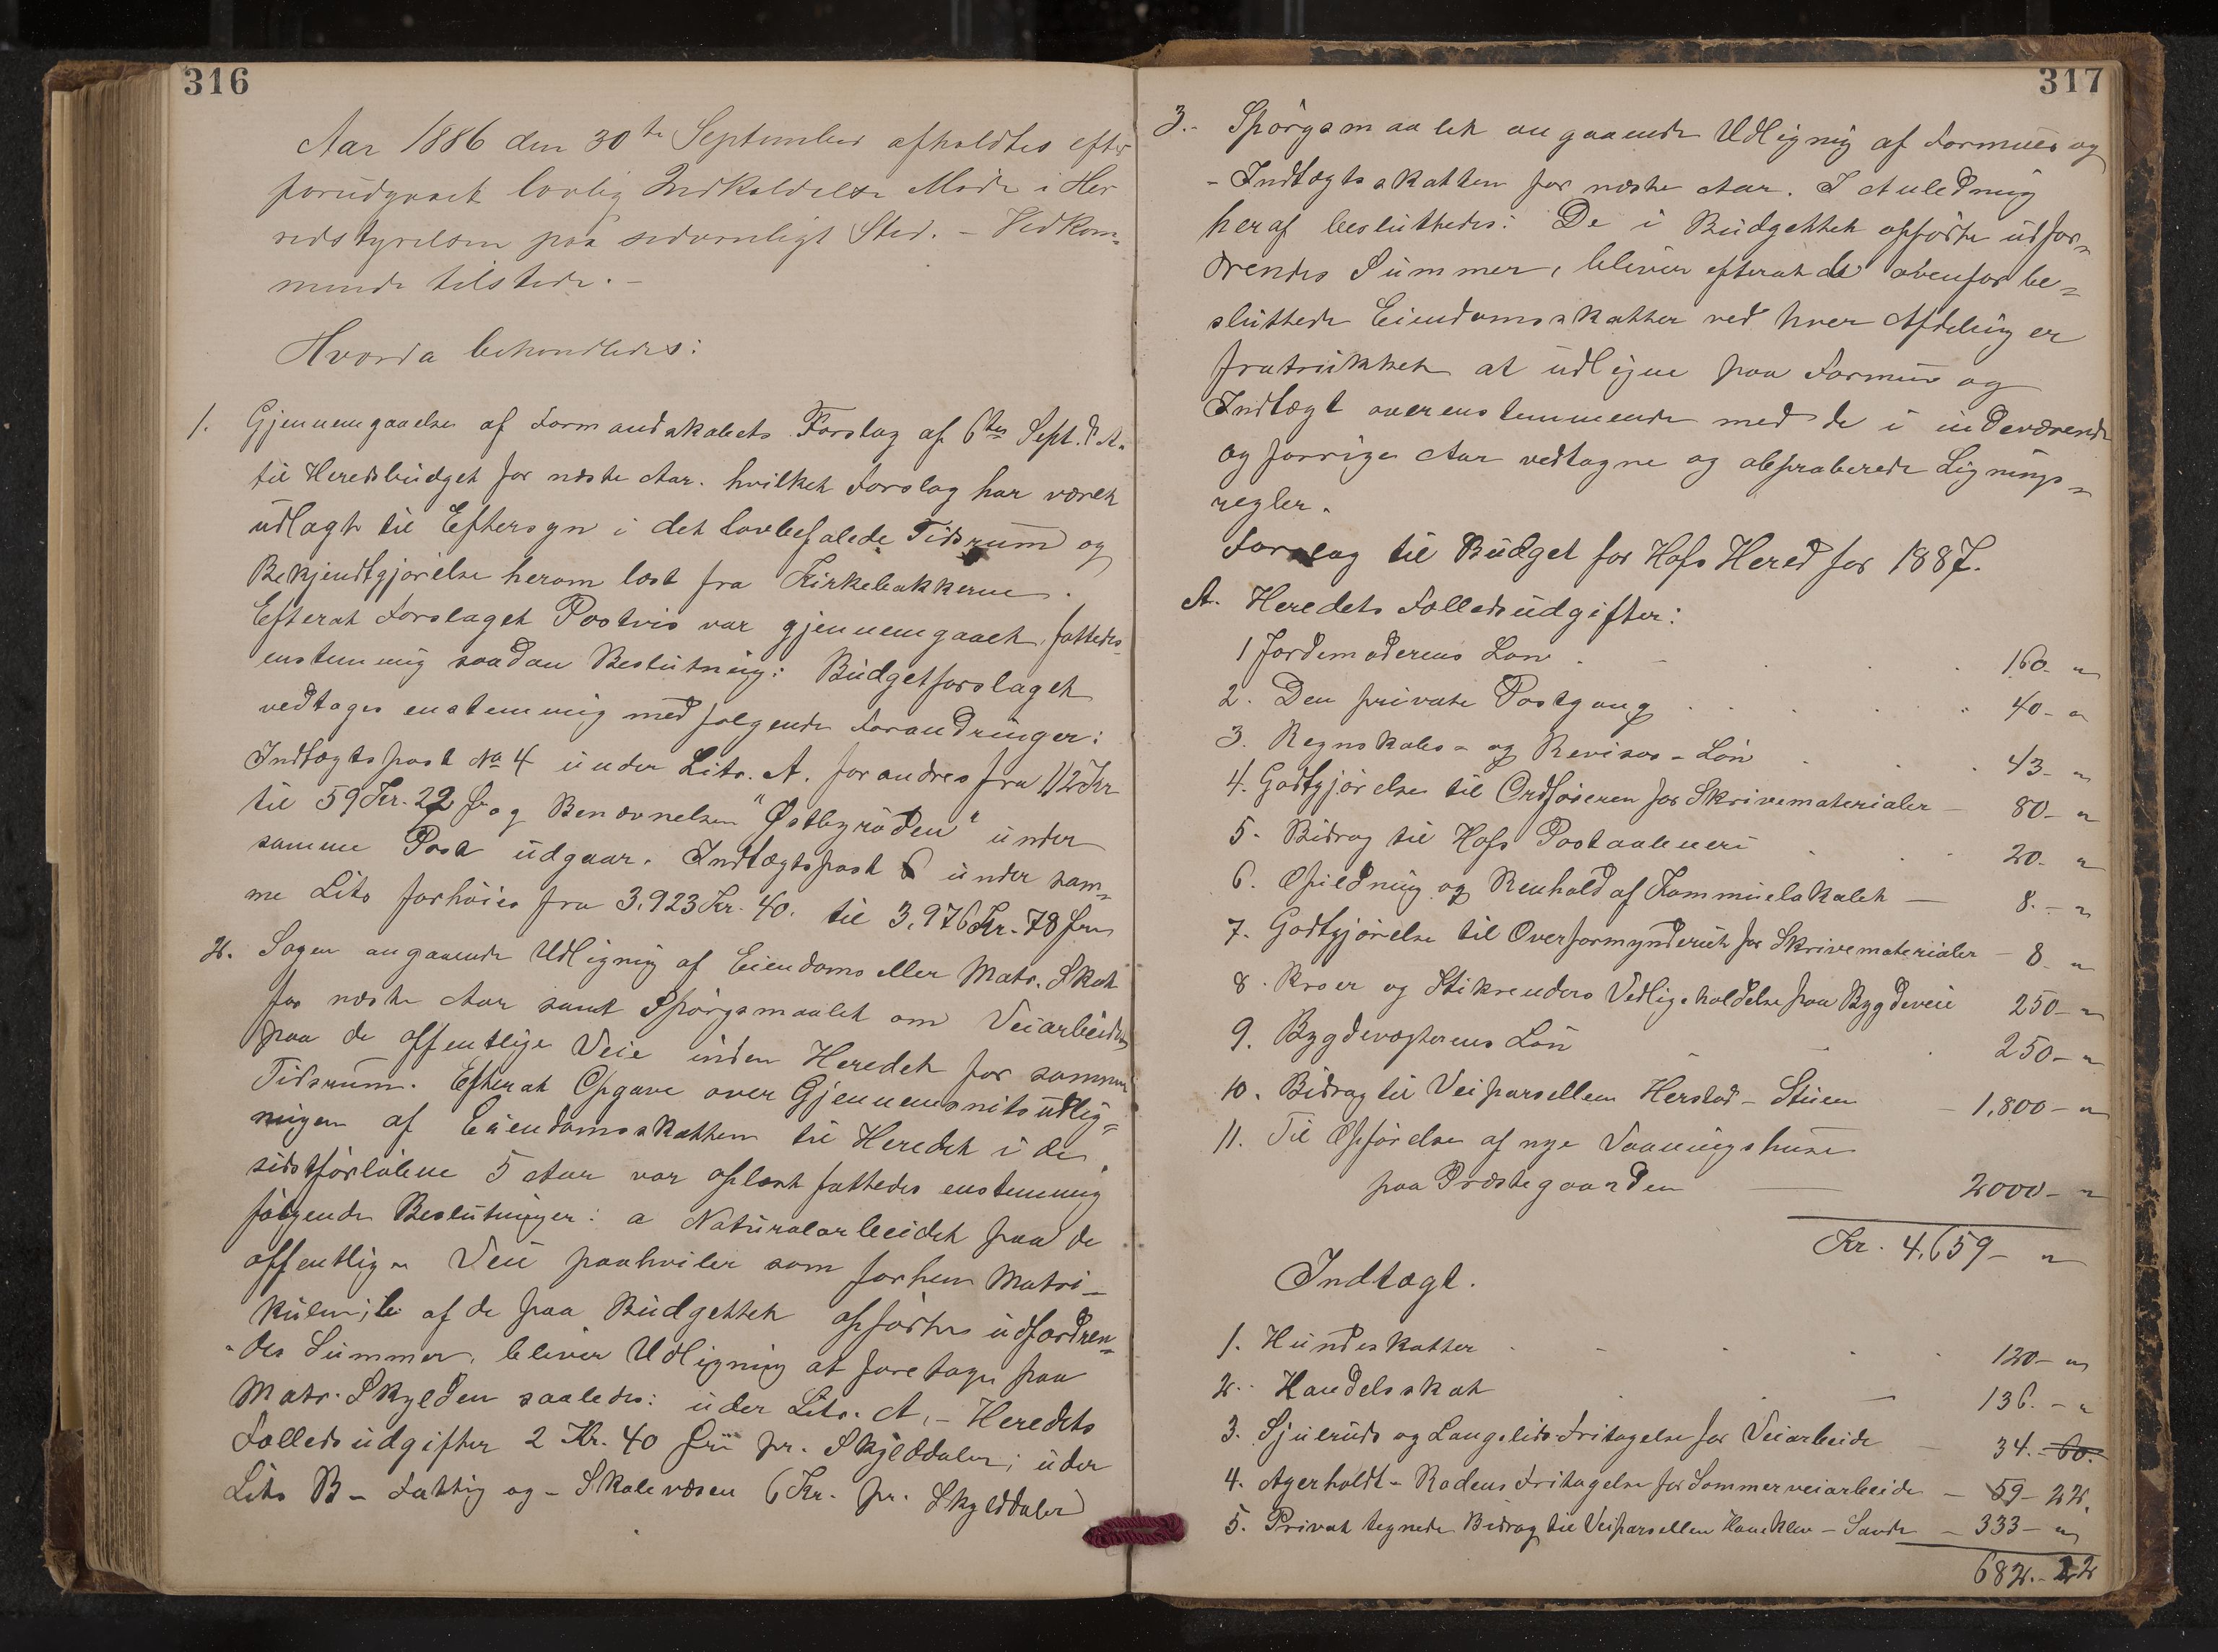 316
Aar 1886 den 30te September afholdtes efter
forudgaaet lovlig Indkaldelse Møde i Her
redstyrelsen paa sedvanligt Sted. - Vedkom=
mende tilstede. -
Hvorda behandledes:
1. Gjennemgaaelse af Formandskabets Forslag af 6tes Sept. d. A.
til Heredsbudget for næste Aar. hvilket Forslag har været
udlagt til Eftersyn i det lovbefalede Tidsrum og
Bekjendtgjørelse herom læst fra Kirkebakkerne.
Efterat Forslaget Postvis var gjennemgaaet, fattedes
enstemmig saadan Beslutning: Budgetforslaget
vedtages enstemmig med følgende Forandringer:
Indtægtspost No 4 under Litr. A. forandres fra 112 Kr
til 59 Kr. 22 Ø og Benævnelsen "Østbyroden" under
samme Post udgaar. Indtægtspost 6 under sam=
me Litr forhøies fra 3.923 Kr. 40. til 3.976 Kr. 78 Øre
2. Sagen angaaende Udligning af Eiendoms eller Matr. Skat
for næste Aar samt Spørgsmaalet om Veiarbeidet
paa de offentlige Veie inden Heredet for samme
Tidsrum. Efterat Opgave over Gjennemsnitsudlig=
ningen af Eiendomsskatten til Heredet i de
sidstforløbne 5 Aar var oplæst fattedes enstemmig
følgende Beslutninger: a Naturalarbeidet paa de
offentlige Veie paahviler som forhen Matri-
kulen; b af de paa Budgettet opførtes udfordren=
-des Summer, bliver Udligning at foretages paa
Matr. Skylden saaledes: uder Litr. A, - Heredets
Fælledsudgifter 2 Kr. 40 Øre pr. Skjelddaler; uder
Litr B - Fattig og - Skolevæsen 6 Kr. pr. Skylddaler
317
3.- Spørgsmaalet angaaende Udligning af Formues og
- Indtægtsskatten for næste Aar. I Anledning
heraf besluttedes: De i Budgettet opførte udfor=
drendes Summer, bliver efterat de ovenfor be=
sluttede Eiendomsskatter ved hver Afdeling er
fratrukket at udligne paa Formue og
Indtægt overenstemmende med de i indeværende
og forrige Aar vedtagne og abproberede Lignings=
regler.
Forslag til Budget for Hofs Hered for 1887.
A. Heredets Fælledsudgifter:
1 Jordemoderens Løn . - . . . 160. "
2. Den private Postgang . . . . . 40- "
3. Regnskabs- og Revisor-Løn . . . 43- "
4. Godtgjørelse til Ordføreren for Skrivematerialer - 80- "
5. Bidrag til Hofs Postaabneri . . . 20. "
6. Opildning og Renhold af Kommunelokalet - 8.- "
7. Godtgjørelse til Overformynderiet for Skrivematerialer - 8- "
8. Broer og Stikrenders Vedligeholdelse paa Bygdeveie 250- "
9. Bygdevægterens Løn - - . 250- "
10. Bidrag til Veiparsellen Herstad - Stuen - 1,800- "
11. Til Opførelse af nye Vaaningshuse
paa Præstegaarden - 2000- "
Kr. 4,659- "
Indtægt.
1. Hundeskatter . - . . . 120- "
2. Handelsskat . . - 136.- "
3. Sjueruds og Langelids Fritagelse for Veiarbeide - 34.- 60.-
4. Agerholdt-Rodens Fritagelse for Sommerveiarbeide - 59- 22.
5. Privat tegnede Bidrag til Veiparsellen Haneklev - Sande - 333- "
682.- 22